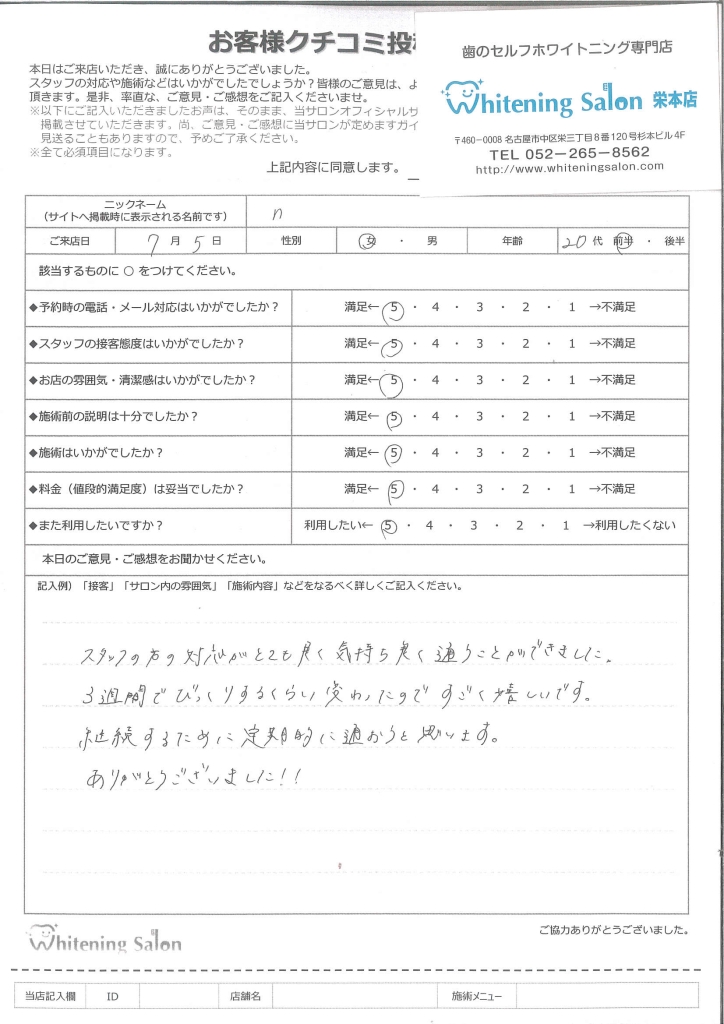 お客様クチコミ投稿
本日はご来店いただき、誠にありがとうございました。
スタッフの対応や施術などはいかがでしたでしょうか？皆様のご意見は、よ
頂きます。是非、率直な、ご意見・ご感想をご記入くださいませ。
※以下にご記入いただきましたお声は、そのまま、当サロンオフィシャルサ
掲載させていただきます。尚、ご意見・ご感想に当サロンが定めますガイ
見送ることもありますので、予めご了承ください。
※全て必須項目になります。
上記内容に同意します。
歯のセルフホワイトニング専門店
Whitening Salon 栄本店
〒460-0008 名古屋市中区栄三丁目8番120号杉本ビル4F
TEL 052-265-8562
http://www.whiteningsalon.com
ニックネーム
（サイトへ掲載時に表示される名前です） n
ご来店日 7月5日 性別 女・男 年齢 20代 前半・後半
該当するものに○をつけてください。
◆予約時の電話・メール対応はいかがでしたか？ 満足←5・4・3・2・1→不満足
◆スタッフの接客態度はいかがでしたか？ 満足←5・4・3・2・1→不満足
◆お店の雰囲気・清潔感はいかがでしたか？ 満足←5・4・3・2・1→不満足
◆施術前の説明は十分でしたか？ 満足←5・4・3・2・1→不満足
◆施術はいかがでしたか？ 満足←5・4・3・2・1→不満足
◆料金（値段的満足度）は妥当でしたか？ 満足←5・4・3・2・1→不満足
◆また利用したいですか？ 利用したい←5・4・3・2・1→利用したくない
本日のご意見・ご感想をお聞かせください。
記入例）「接客」「サロン内の雰囲気」「施術内容」などをなるべく詳しくご記入ください。
スタッフの方の対応がとても良く気持ち良く通うことができました。
3週間でびっくりするくらい変わったのですごく嬉しいです。
継続するために定期的に通おうと思います。
ありがとうございました!!
Whitening Salon
ご協力ありがとうございました。
当店記入欄 ID 店舗名 施術メニュー